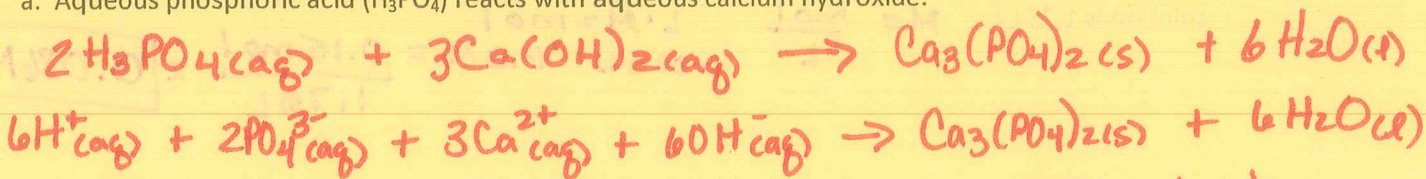 a. Aqueous phosphoric acid (H₃PO₄) reacts with aqueous calcium hydroxide.
2 H₃PO₄(aq) + 3Ca(OH)₂(aq) → Ca₃(PO₄)₂(s) + 6 H₂O(l)
6H⁺(aq) + 2PO₄³⁻(aq) + 3Ca²⁺(aq) + 6OH⁻(aq) → Ca₃(PO₄)₂(s) + 6 H₂O(l)